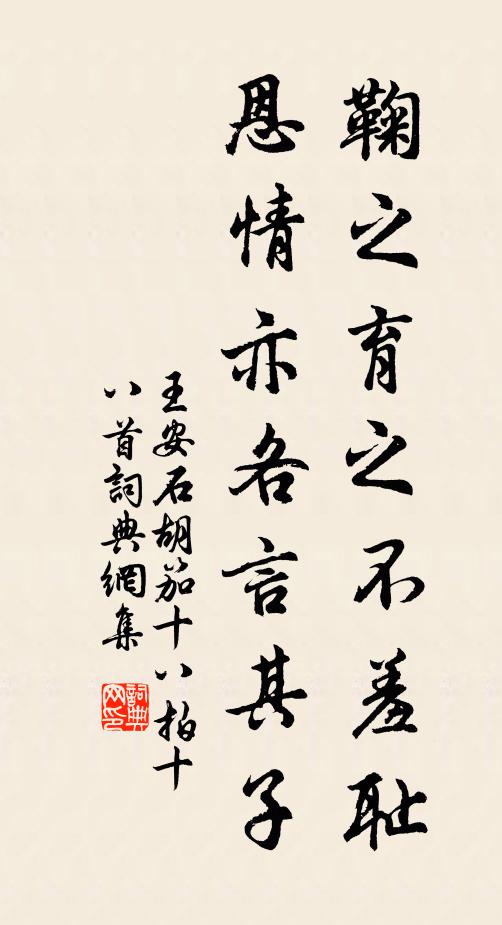 鞠之育之不羞耻
恩情亦各言其子
王安石胡笳十八拍十
八首詞典網集
詞典
网印